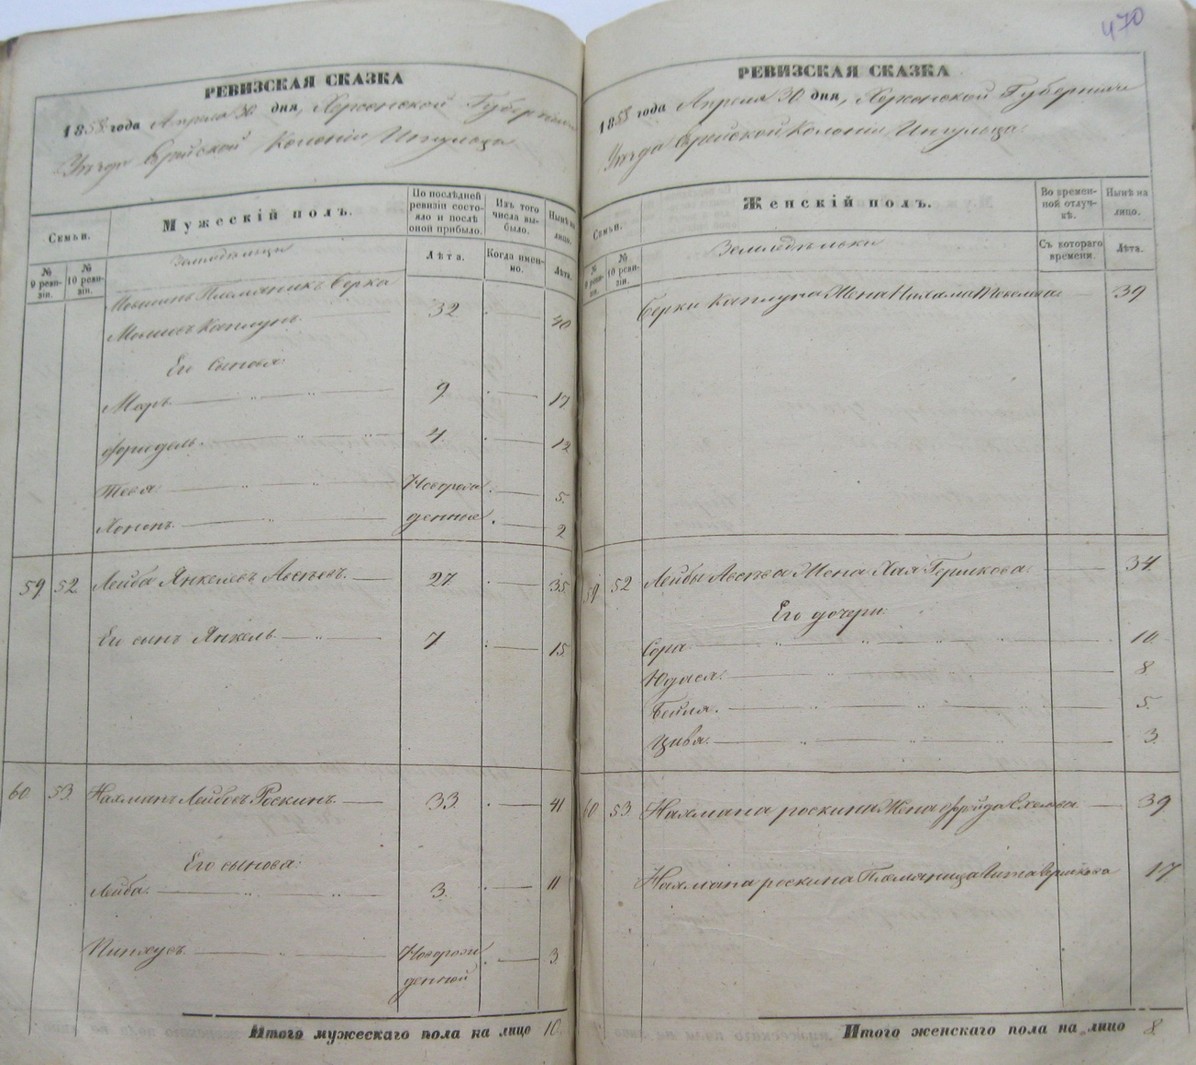 470
РЕВИЗСКАЯ СКАЗКА
1858 года Апреля 30 дня, Херсонской Губернии
Уезда Еврейской Колоніи Ингульца
Семьи.
Мужескій полъ.
По послѣдней ревизіи состояло и послѣ оной прибыло.
Изъ того числа выбыло.
Нынѣ на лицо.
№ 9 ревизіи.
№ 10 ревизіи.
Земледѣльцы
Лѣта.
Когда именно.
Лѣта.
Племянникъ Берка
Каплунъ 32 40
Его Сыновья:
9 17
Фридель 4 12
Тевья Новорож 5
денные 2
59 52 Лейба Янкелевъ 27 35
Его сынъ Янкель 7 15
60 53 Нахманъ Лейбовъ Роскинъ 33 41
Его сыновья:
Лейба 3 11
Пинхусъ Новорож
денной 3
Итого мужескаго пола на лицо 10
РЕВИЗСКАЯ СКАЗКА
1858 года Апреля 30 дня, Херсонской Губерніи
Уезда Еврейской Колоніи Ингульца
Семьи.
Женскій полъ.
Во временной отлучкѣ.
Нынѣ на лицо.
№ 9 ревизіи.
№ 10 ревизіи.
Земледѣльки
Съ котораго времени.
Лѣта.
Берки Каплуна Жена 39
59 52 Лейбы Жена Хая Гершкова 34
Его дочери:
Сора 10
Юдася 8
Бейля 5
Цивья 3
60 53 Нахмана Роскина Жена Фрейда 39
Нахмана Роскина Племяница 17
Итого женскаго пола на лицо 8